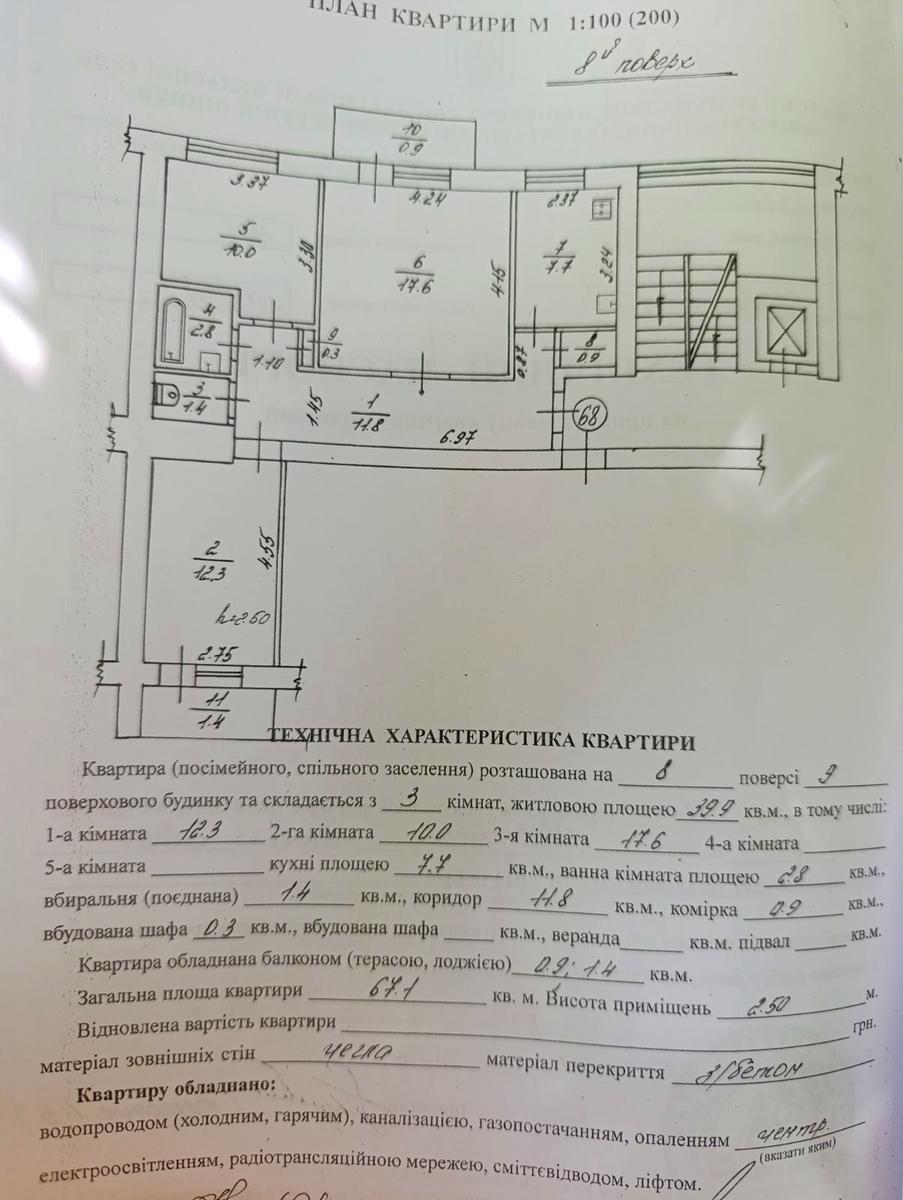 ПЛАН КВАРТИРИ М 1:100 (200)
8й поверх
10
0.9
3.37
4.24
2.37
5
10.0
3.30
6
17.6
4.15
7
7.7
3.24
4
2.8
1.10
9
0.3
0.87
8
0.9
3
1.4
1.45
1
11.8
6.97
68
2
12.3
4.55
h=2.50
2.75
11
1.4
ТЕХНІЧНА ХАРАКТЕРИСТИКА КВАРТИРИ
Квартира (посімейного, спільного заселення) розташована на 8 поверсі 9
поверхового будинку та складається з 3 кімнат, житловою площею 39.9 кв.м., в тому числі:
1-а кімната 12.3 2-га кімната 10.0 3-я кімната 17.6 4-а кімната
5-а кімната кухні площею 7.7 кв.м., ванна кімната площею 2.8 кв.м.,
вбиральня (поєднана) 1.4 кв.м., коридор 11.8 кв.м., комірка 0.9 кв.м.,
вбудована шафа 0.3 кв.м., вбудована шафа кв.м., веранда кв.м. підвал кв.м.
Квартира обладнана балконом (терасою, лоджією) 0.9; 1.4 кв.м.
Загальна площа квартири 67.1 кв. м. Висота приміщень 2.50 м.
Відновлена вартість квартири грн.
матеріал зовнішніх стін цегла матеріал перекриття з/бетон
Квартиру обладнано:
водопроводом (холодним, гарячим), каналізацією, газопостачанням, опаленням центр.
(вказати яким)
електроосвітленням, радіотрансляційною мережею, сміттєвідводом, ліфтом.